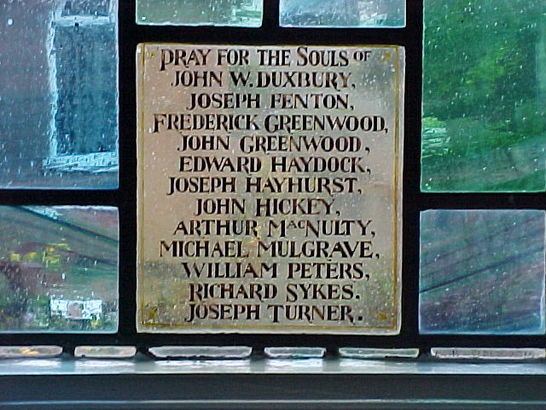 PRAY FOR THE SOULS OF
JOHN W. DUXBURY,
JOSEPH FENTON,
FREDERICK GREENWOOD,
JOHN GREENWOOD,
EDWARD HAYDOCK,
JOSEPH HAYHURST,
JOHN HICKEY,
ARTHUR MACNULTY,
MICHAEL MULGRAVE,
WILLIAM PETERS,
RICHARD SYKES.
JOSEPH TURNER.